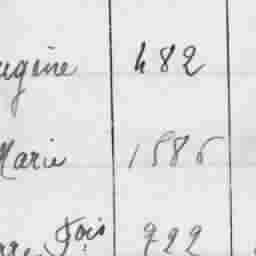 ugène 482
Marie 1586
Fois 922